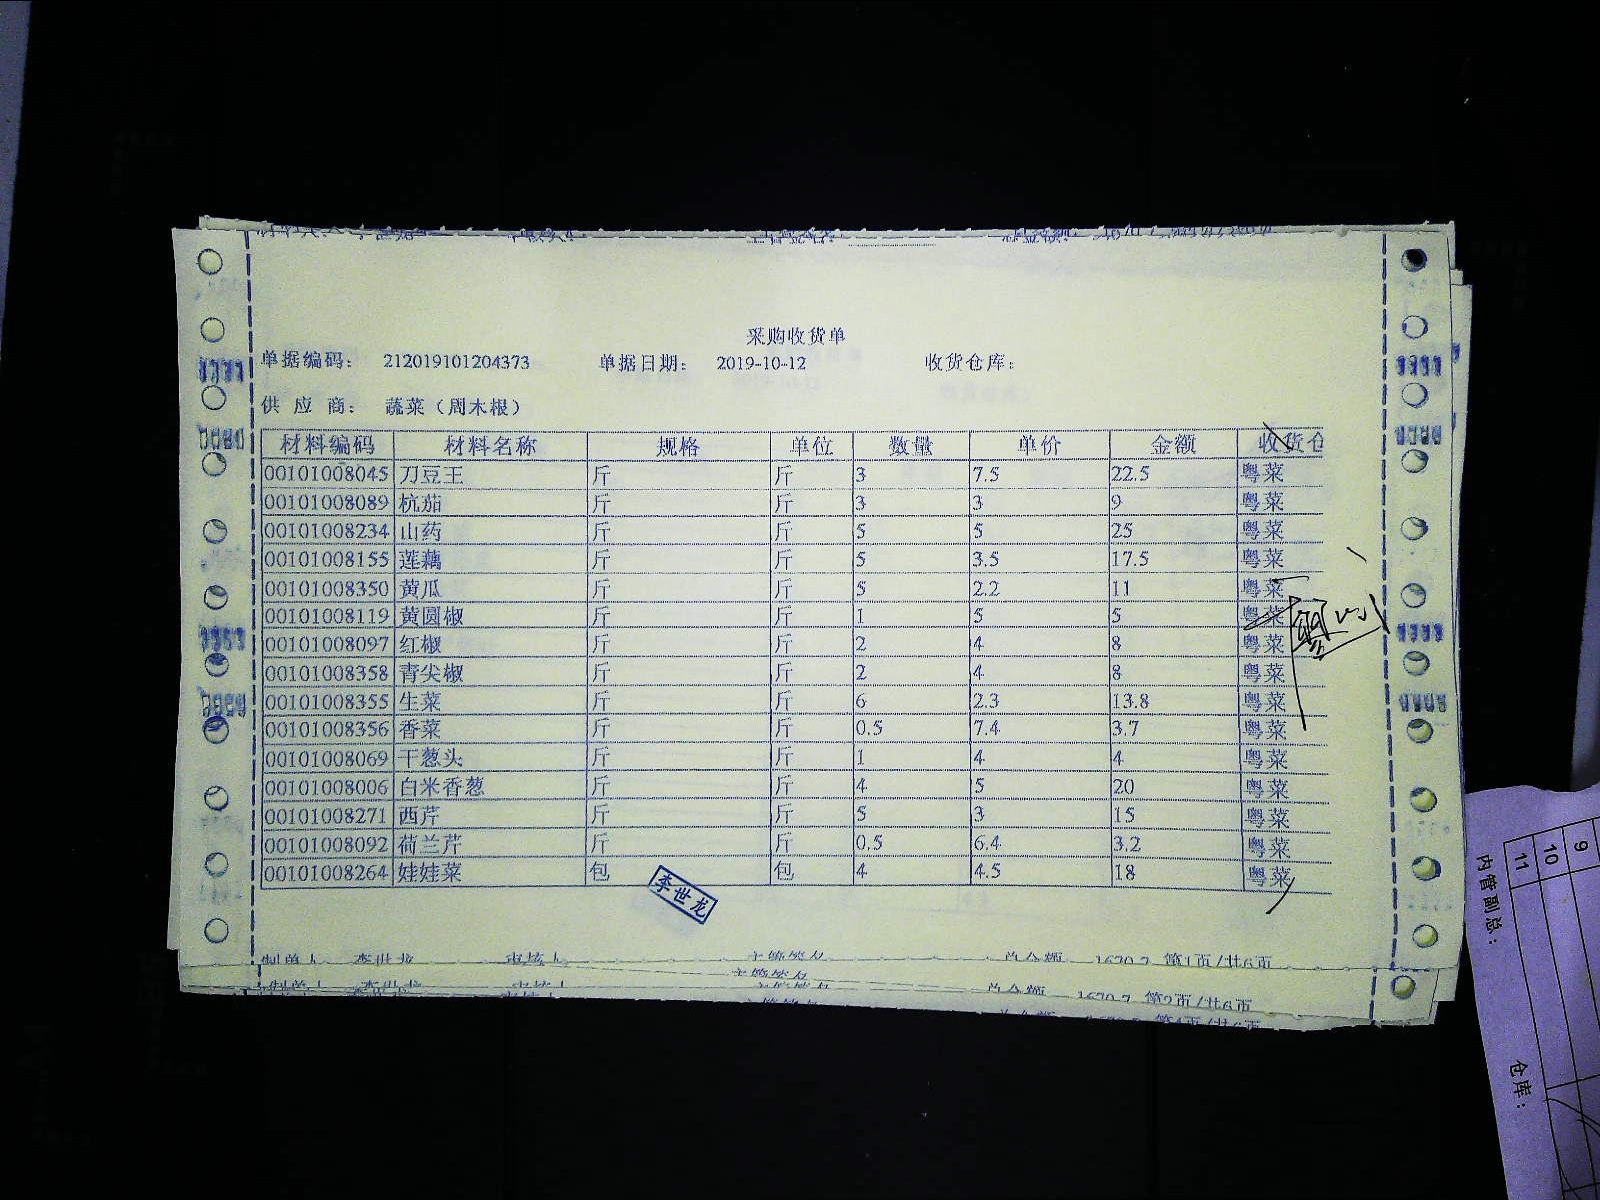 采购收货单
单据编码： 212019101204373 单据日期： 2019-10-12 收货仓库：
供 应 商： 蔬菜（周木根）
材料编码 材料名称 规格 单位 数量 单价 金额 收货仓
00101008045 刀豆王 斤 斤 3 7.5 22.5 粤菜
00101008089 杭茄 斤 斤 3 3 9 粤菜
00101008234 山药 斤 斤 5 5 25 粤菜
00101008155 莲藕 斤 斤 5 3.5 17.5 粤菜
00101008350 黄瓜 斤 斤 5 2.2 11 粤菜
00101008119 黄圆椒 斤 斤 1 5 5 粤菜
00101008097 红椒 斤 斤 2 4 8 粤菜
00101008358 青尖椒 斤 斤 2 4 8 粤菜
00101008355 生菜 斤 斤 6 2.3 13.8 粤菜
00101008356 香菜 斤 斤 0.5 7.4 3.7 粤菜
00101008069 干葱头 斤 斤 1 4 4 粤菜
00101008006 白米香葱 斤 斤 4 5 20 粤菜
00101008271 西芹 斤 斤 5 3 15 粤菜
00101008092 荷兰芹 斤 斤 0.5 6.4 3.2 粤菜
00101008264 娃娃菜 包 包 4 4.5 18 粤菜
李世龙
制单人 李世龙 审核人 主管签名 总金额 1670.7 第1页/共6页
主管签名
制单人 李世龙 审核人 主管签名 总金额 1670.7 第2页/共6页
第4页/共6页
9
10
11
内管副总：
仓库：